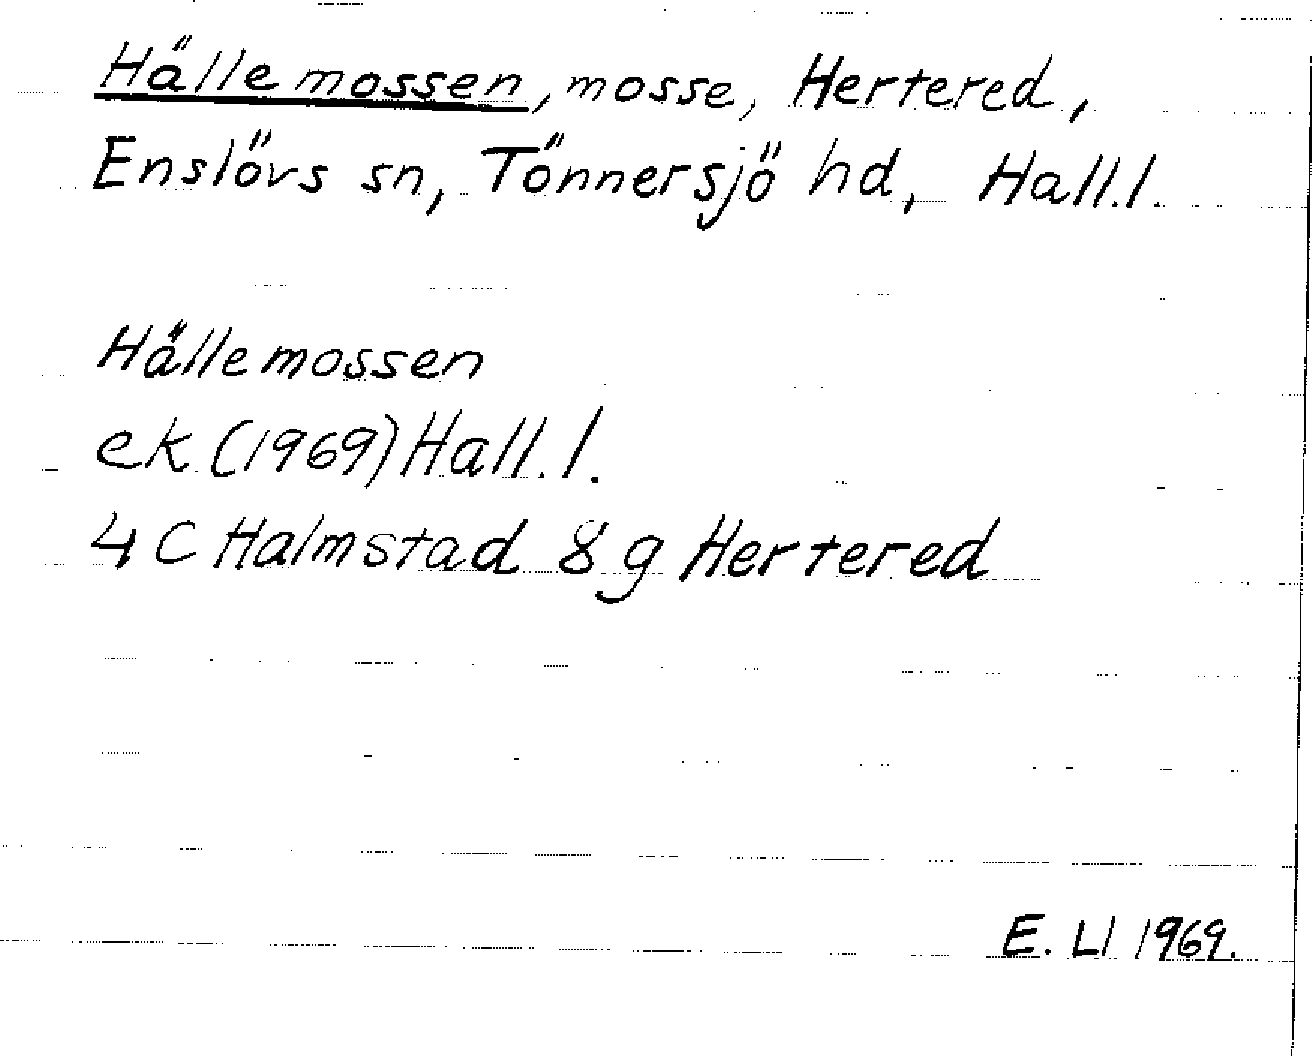 Hällemossen, mosse, Hertered,
Enslövs sn, Tönnersjö hd, Hall.l.
Hällemossen
ek (1969) Hall.l.
4 C Halmstad 8 g Hertered
E. Ll 1969.